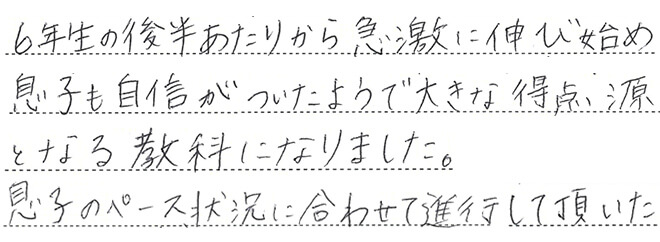 6年生の後半あたりから急激に伸び始め
息子も自信がついたようで大きな得点源
となる教科になりました。
息子のペース、状況に合わせて進行して頂いた